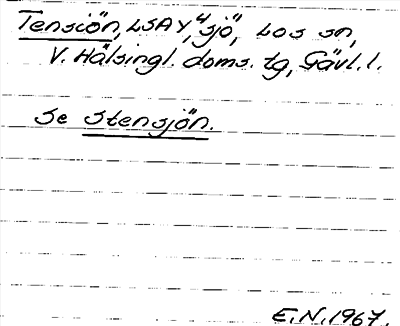 Tensiön, LSAY, "sjö", Los sn,
V. Hälsingl. doms. tg, Gävl. l.
Se Stensjön.
E.N. 1967.